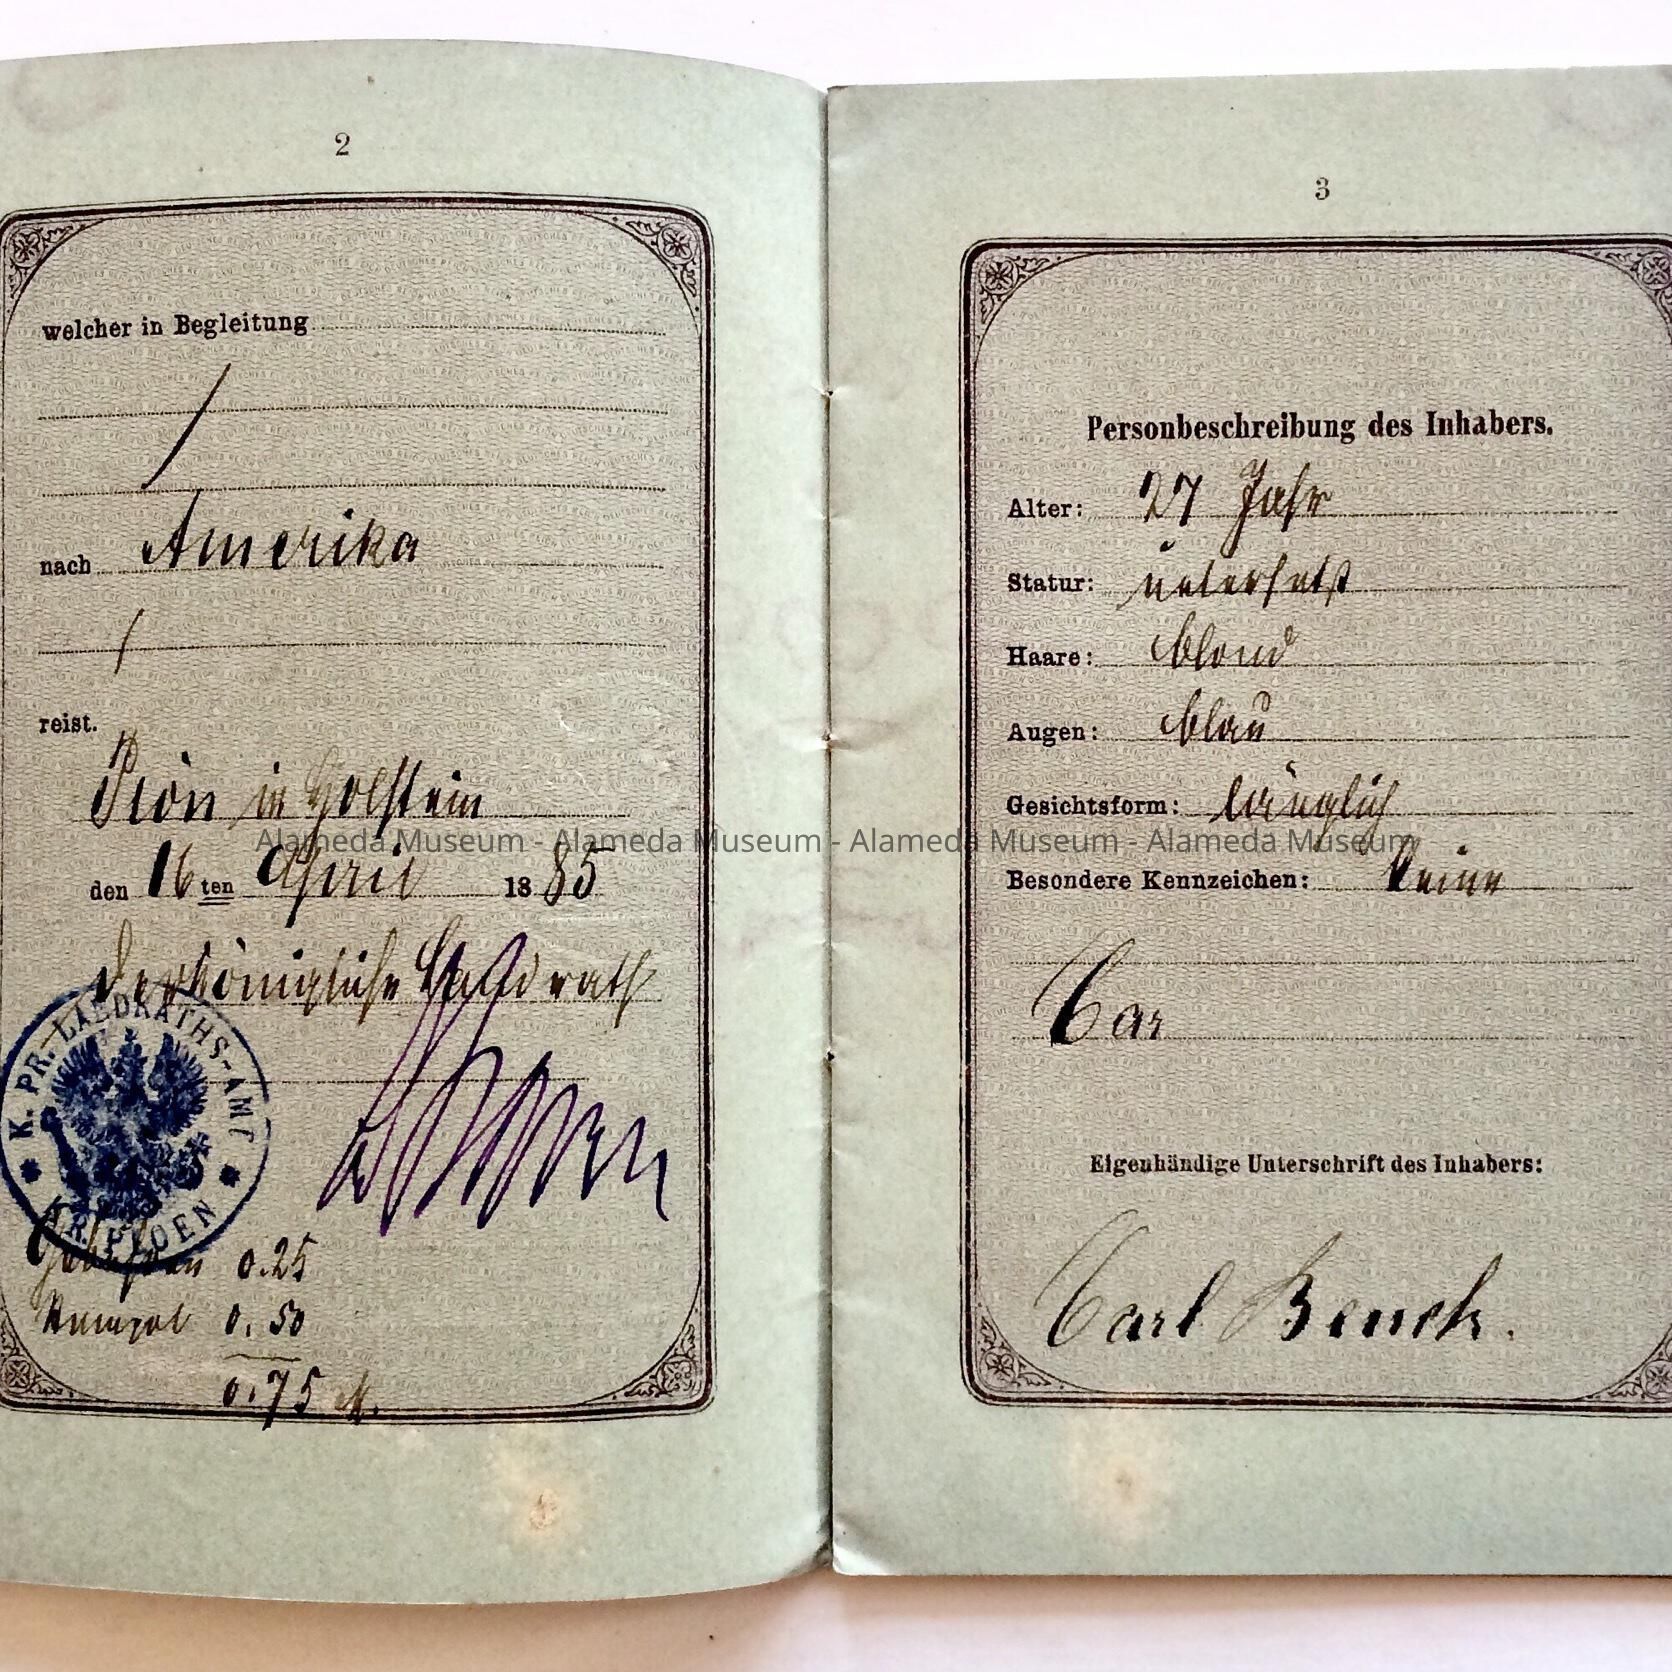 2
welcher in Begleitung
nach Amerika
reist.
Plön in Holstein
den 16ten April 1885
Der Königliche Landrath
K. PR. LANDRATHS-AMT
KR. PLOEN
Gebühren 0.25
Stempel 0.50
0.75 M.
3
Personbeschreibung des Inhabers.
Alter: 27 Jahr
Statur: untersetzt
Haare: blond
Augen: blau
Gesichtsform: länglich
Besondere Kennzeichen: keine
Car
Eigenhändige Unterschrift des Inhabers:
Carl Benck.
Alameda Museum - Alameda Museum - Alameda Museum - Alameda Museum